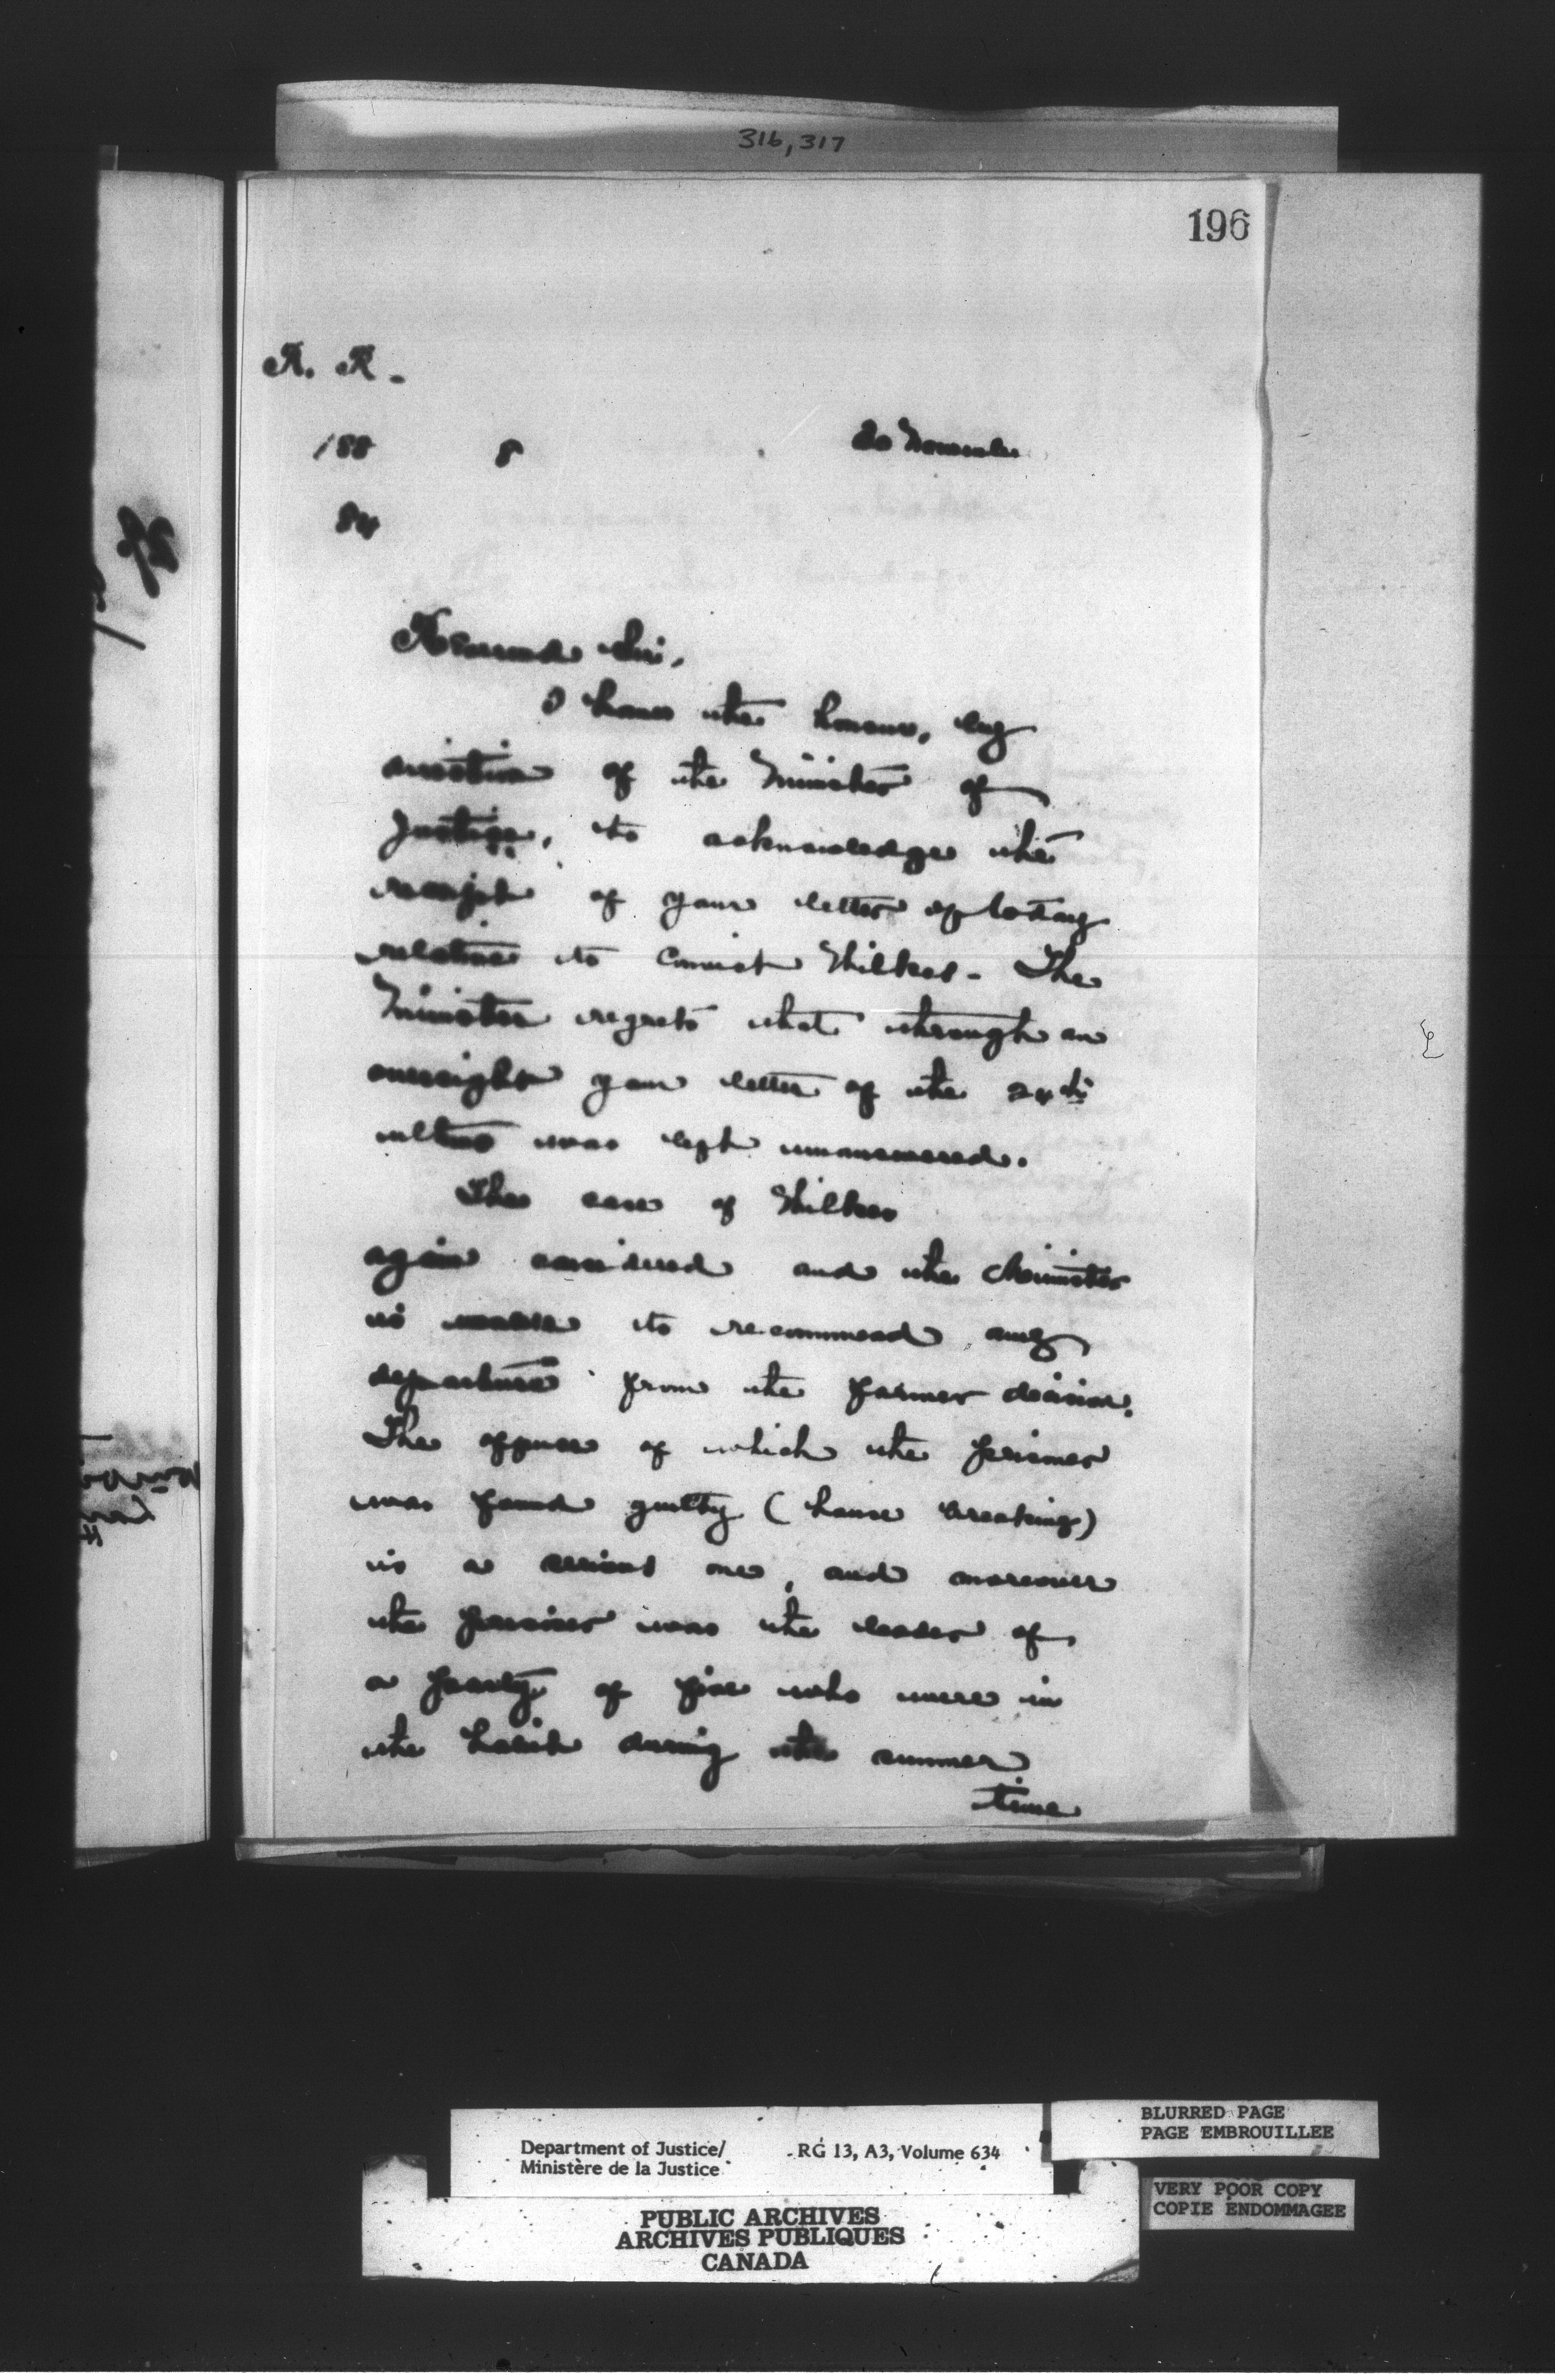 316, 317
196
188 8 20 November
84
Reverend Sir,
I have the honour, by
direction of the Minister of
Justice, to acknowledge the
receipt of your letter of to day
relative to convict Wilkes. The
Minister regrets that through an
oversight your letter of the 24th
ultimo was left unanswered.
The case of Wilkes
again considered and the Minister
is unable to recommend any
departure from the former decision.
The offence of which the prisoner
was found guilty (house breaking)
is a serious one, and moreover
the prisoner was the leader of
a party of five who were in
the habit during the summer
time
Department of Justice/ RG 13, A3, Volume 634
Ministère de la Justice
PUBLIC ARCHIVES
ARCHIVES PUBLIQUES
CANADA
BLURRED PAGE
PAGE EMBROUILLEE
VERY POOR COPY
COPIE ENDOMMAGEE